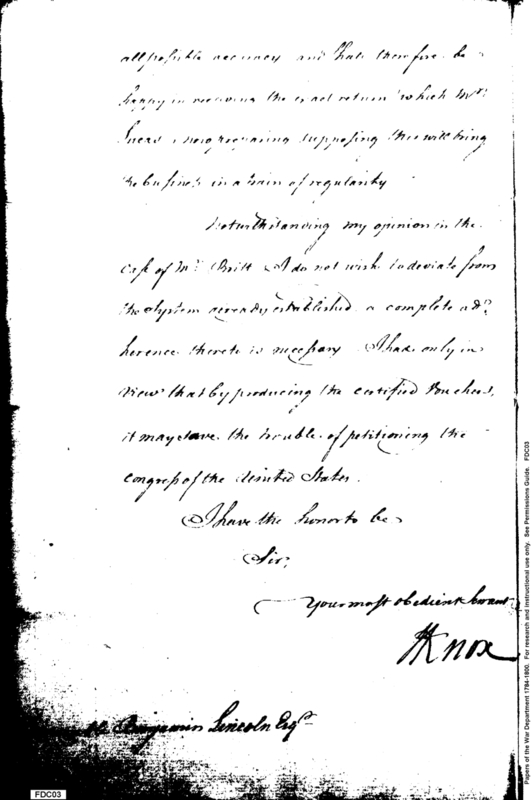 all possible accuracy and shall therefore be
happy in receiving the exact return which Mr.
is now preparing supposing this will bring
the business in a train of regularity
Notwithstanding my opinion in the
case of Mr. Britt I do not wish to deviate from
the System already established. a complete ad=
herence thereto is necessary. I had only in
view that by producing the certified Vouchers,
it may save the trouble of petitioning the
Congress of the United States.
I have the honor to be
Sir,
Your most obedient Servant
HKnox
Benjamin Lincoln Esqr.
FDC03
Papers of the War Department 1784-1800. For research and instructional use only. See Permissions Guide. FDC03